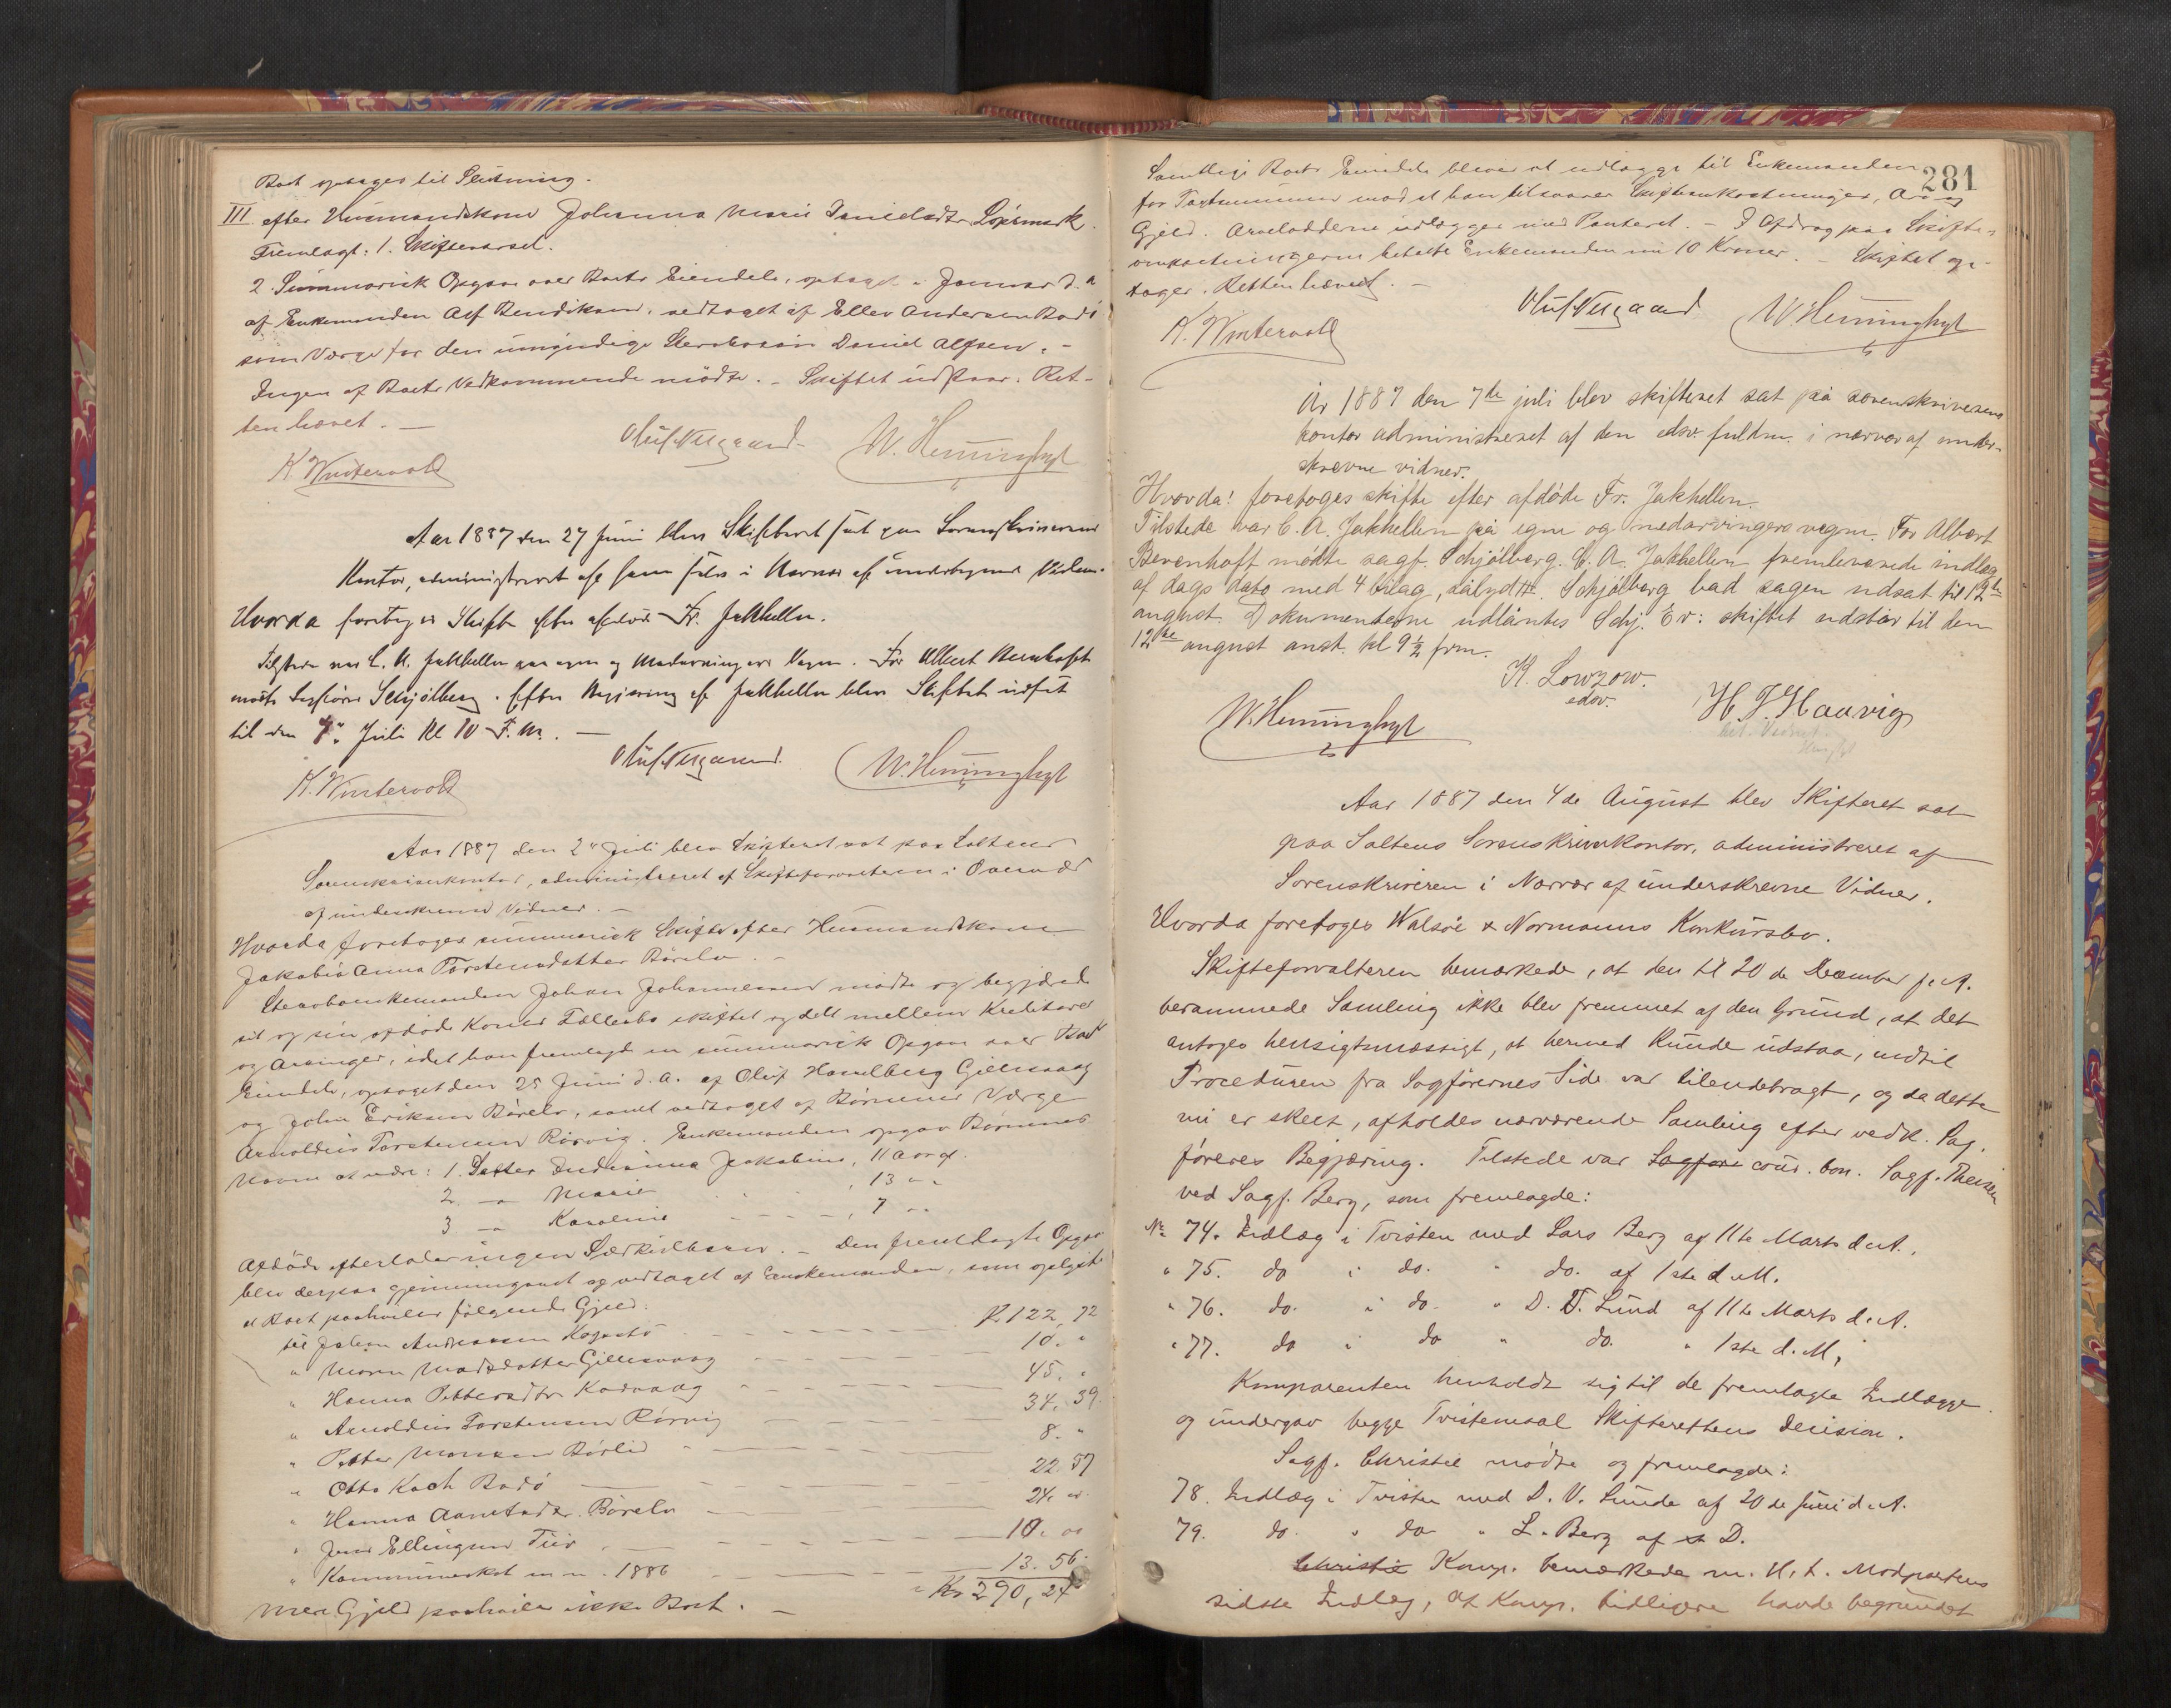 Boet optages til Slutning.
III. efter Husmandskone Johanna Marie Danielsdtr Løpsmark.
Fremlagt: 1. Skiftevarsel.
2. Summarisk Opgave over Boets Eiendele, optaget " Januar d. A
af Enkemanden Alf Bendiksen, vedtaget af Eller Andersen Bodø
som Værge for den umyndige Stervbosøn Daniel Alfsen. -
Ingen af Boets Vedkommende mødte. - Skiftet udstaar. Ret-
ten hævet. —
Oluf Neegaard W. Henninghyt
K. Wintervold
Aar 1887 den 27 Juni blev Skifteret sat paa Sorenskriverens
Kontor, administreret af i Nærvær af undertegnede Vidner.
Hvorda foretoges Skifte efter afdøde Fr. Jakhelln.
Tilstede var C. A. Jakhelln paa egne og Medarvingers Vegne. For Albert Bevenhoft
mødte Sagfører Schjølberg. Efter Begjæring af Jakhelln blev Skiftet udsat
til den 7de Juli Kl 10 F. M. —
Oluf Neegaard. W. Henninghyt
K. Wintervold
Aar 1887 den 2den Juli blev Skifteret sat paa Saltens
Sorenskriverkontor, administreret af Skifteforvalteren i Overvær
af underskrevne Vidner. —
Hvorda foretoges summarisk Skifte efter Husmandskone
Jakobia Anna Torstensdatter Børelv. -
Stervboenkemanden Johan Johannesen mødte og begjærede
sit og sin afdøde Kones Fællesbo skiftet og delt mellem Kreditorer
og Arvinger, idet han fremlagde en summarisk Opgave over Boets
Eiendele, optaget den 25 Juni d. A. af Oluf Havelberg Gillesvaag
og John Eriksen Børelv, samt vedtaget af Børnenes Værge
Arnoldus Torstensen Rørvig. Enkemanden opgav Børnenes
Navne at være: 1. Datter Indianna Jakobine, 11 Aar gl.
2 — " Marie , 13 " "
3 — " Karoline , 7 " "
Afdøde efterlader ingen Særkulbarn. - Den fremlagte Opgave
blev derpaa gjennemgaaet og vedtaget af Enkemanden, som opgav
at Boet paahviler følgende Gjæld:
til Johan Andreassen Kogestø K 122,72
" Maren Madsdatter Gillesvaag 10. "
" Hanna Pettersdtr Kodvaag 45. "
" Arnoldus Torstensen Rørvig 34. 39
" Petter Monssen Børlid 8. "
" Otto Koch Bodø 22. 57
" Hanna Børelv 24. "
" Jens Ellingsen Tuv 10. 00
" Kommuneskat m. m. 1886 13. 56
Kr 290, 24
Mere Gjæld paahviler ikke Boet. —
281
Samtlige Boets Eiendele blev at udlægge til Enkemanden
for Taxtsummen mod at han tilsvarer Skifteomkostninger, Arv og
Gjæld. Arvelodderne udlægges med Panteret. - I Afdrag paa Skifte-
omkostningerne betalte Enkemanden nu 10 Kroner. - Skiftet op-
tages. Retten hævet. -
Oluf Neegaard W. Henninghyt
K. Wintervold
År 1887 den 7de juli blev skifteret sat på sorenskriverens
kontor administreret af den edsv. fuldm. i nærvær af under-
skrevne vidner.
Hvorda! foretoges skifte efter afdøde Fr. Jakhellen.
Tilstede var C. A. Jakhellen på egne og medarvingers vegne. For Albert
Bevenhoft mødte sagf. Schjølberg. C. A. Jakhellen fremleverede indlæg
af dags dato med 4 bilag, sålydtt. Schjølberg bad sagen udsat til 12te
august. Dokumenterne udlåntes Schj. Er: skiftet udstår til den
12te august anst. kl 9½ frm.
K. Lowzow.
edsv.
W. Henninghyt H. J. Haavig
Aar 1887 den 4de August blev Skifteret sat
paa Saltens Sorenskriverkontor, administreret af
Sorenskriveren i Nærvær af underskrevne Vidner.
Hvorda foretoges Walsøe & Normanns Konkursbo.
Skifteforvalteren bemærkede, at den til 20de December f. A.
berammede Samling ikke blev fremmet af den Grund, at det
antoges hensigtsmæssigt, at hermed kunde udstaa, indtil
Proceduren fra Sagførernes Side var tilendebragt, og da dette
nu er skeet, afholdes nærværende Samling efter vedk. Sag-
føreres Begjæring. Tilstede var Sagføre cour. bon. Sagf. Theisen
ved Sagf. Berg, som fremlagde:
No 74. Indlæg i Tvisten med Lars Berg af 11te Marts d. A.
" 75. do i do. " do. af 1ste d. M.
" 76. do. i do. " D. T. Lund af 11te Marts d. A.
" 77. do i do " do. " 1ste d. M.
Komparenten henholdt sig til de fremlagte Indlægge
og undergav begge Tvistemaal Skifterettens Decision.
Sagf. Christie mødte og fremlagde:
78. Indlæg i Tvisten med D. V. Lunde af 20de Juni d. A.
79. do. " do " L. Berg af s. D.
Christie Komp. bemærkede m. H. t. Modpartens
sidste Indlæg, at Komp. tidligere havde begrundet